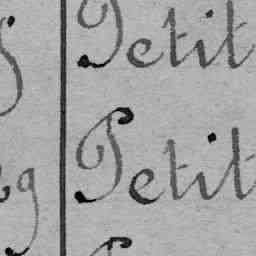 Petit
Petit